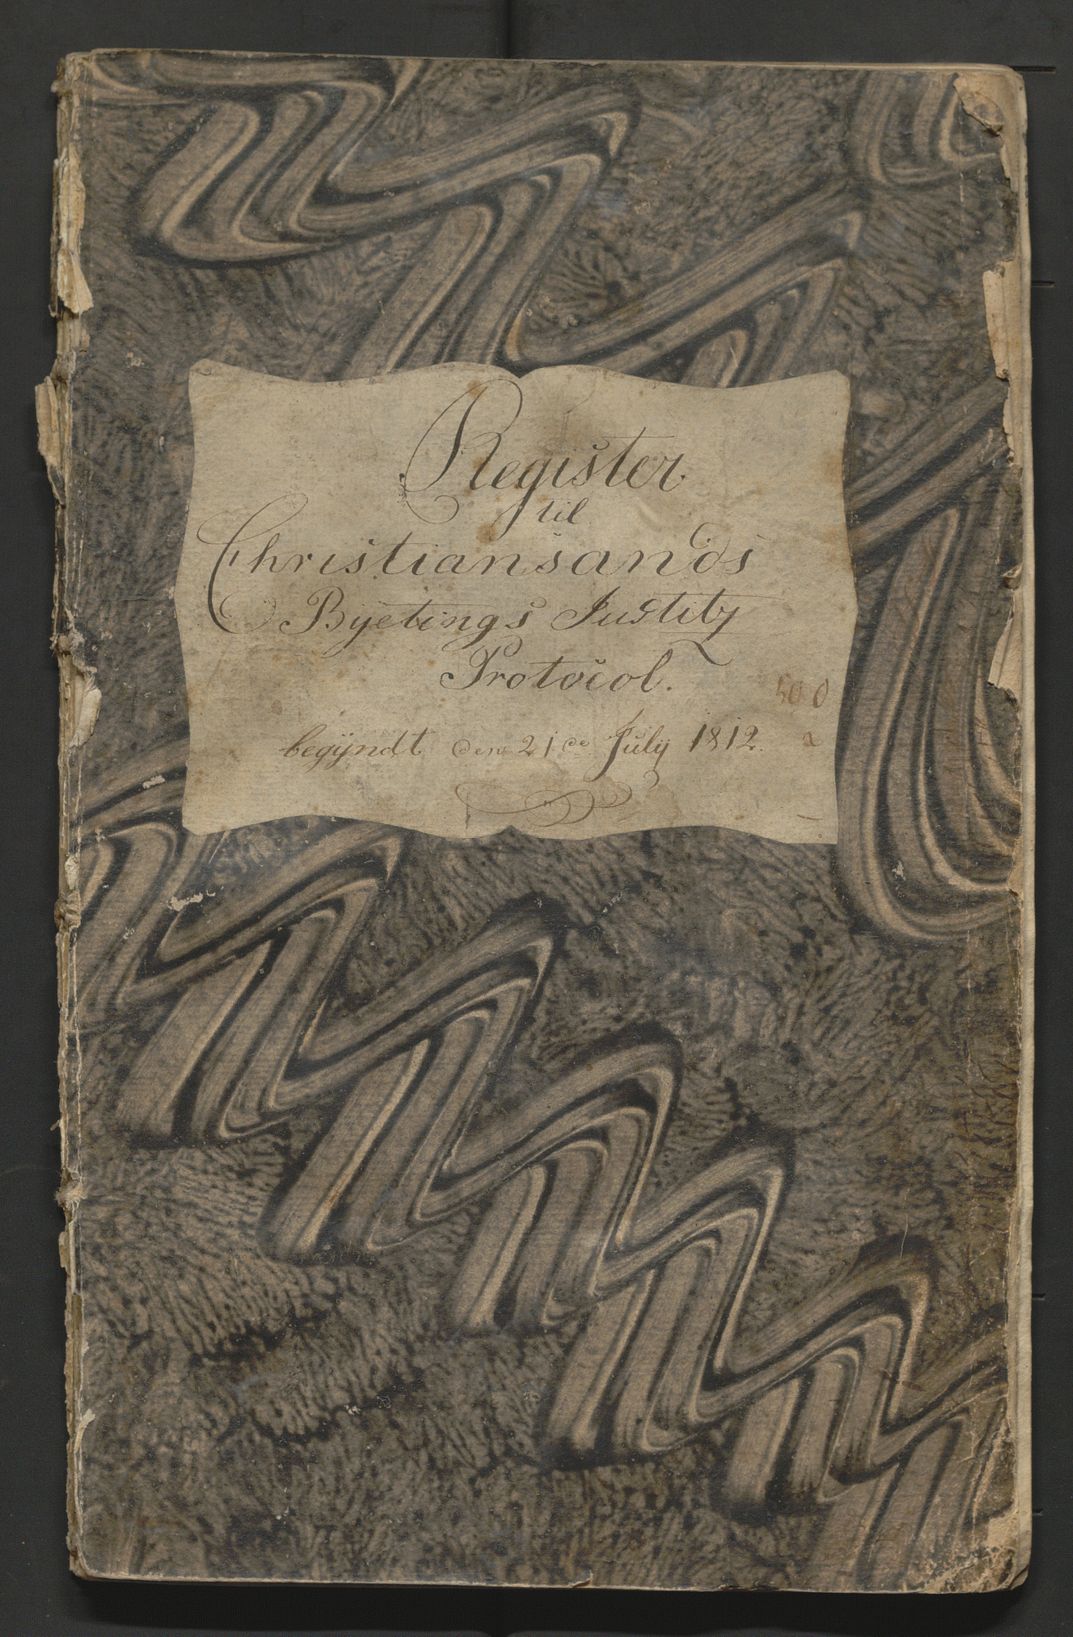 Register
til
Christiansands
Byetings Justitz
Protocol.
begÿndt den 21de Julÿ 1812.